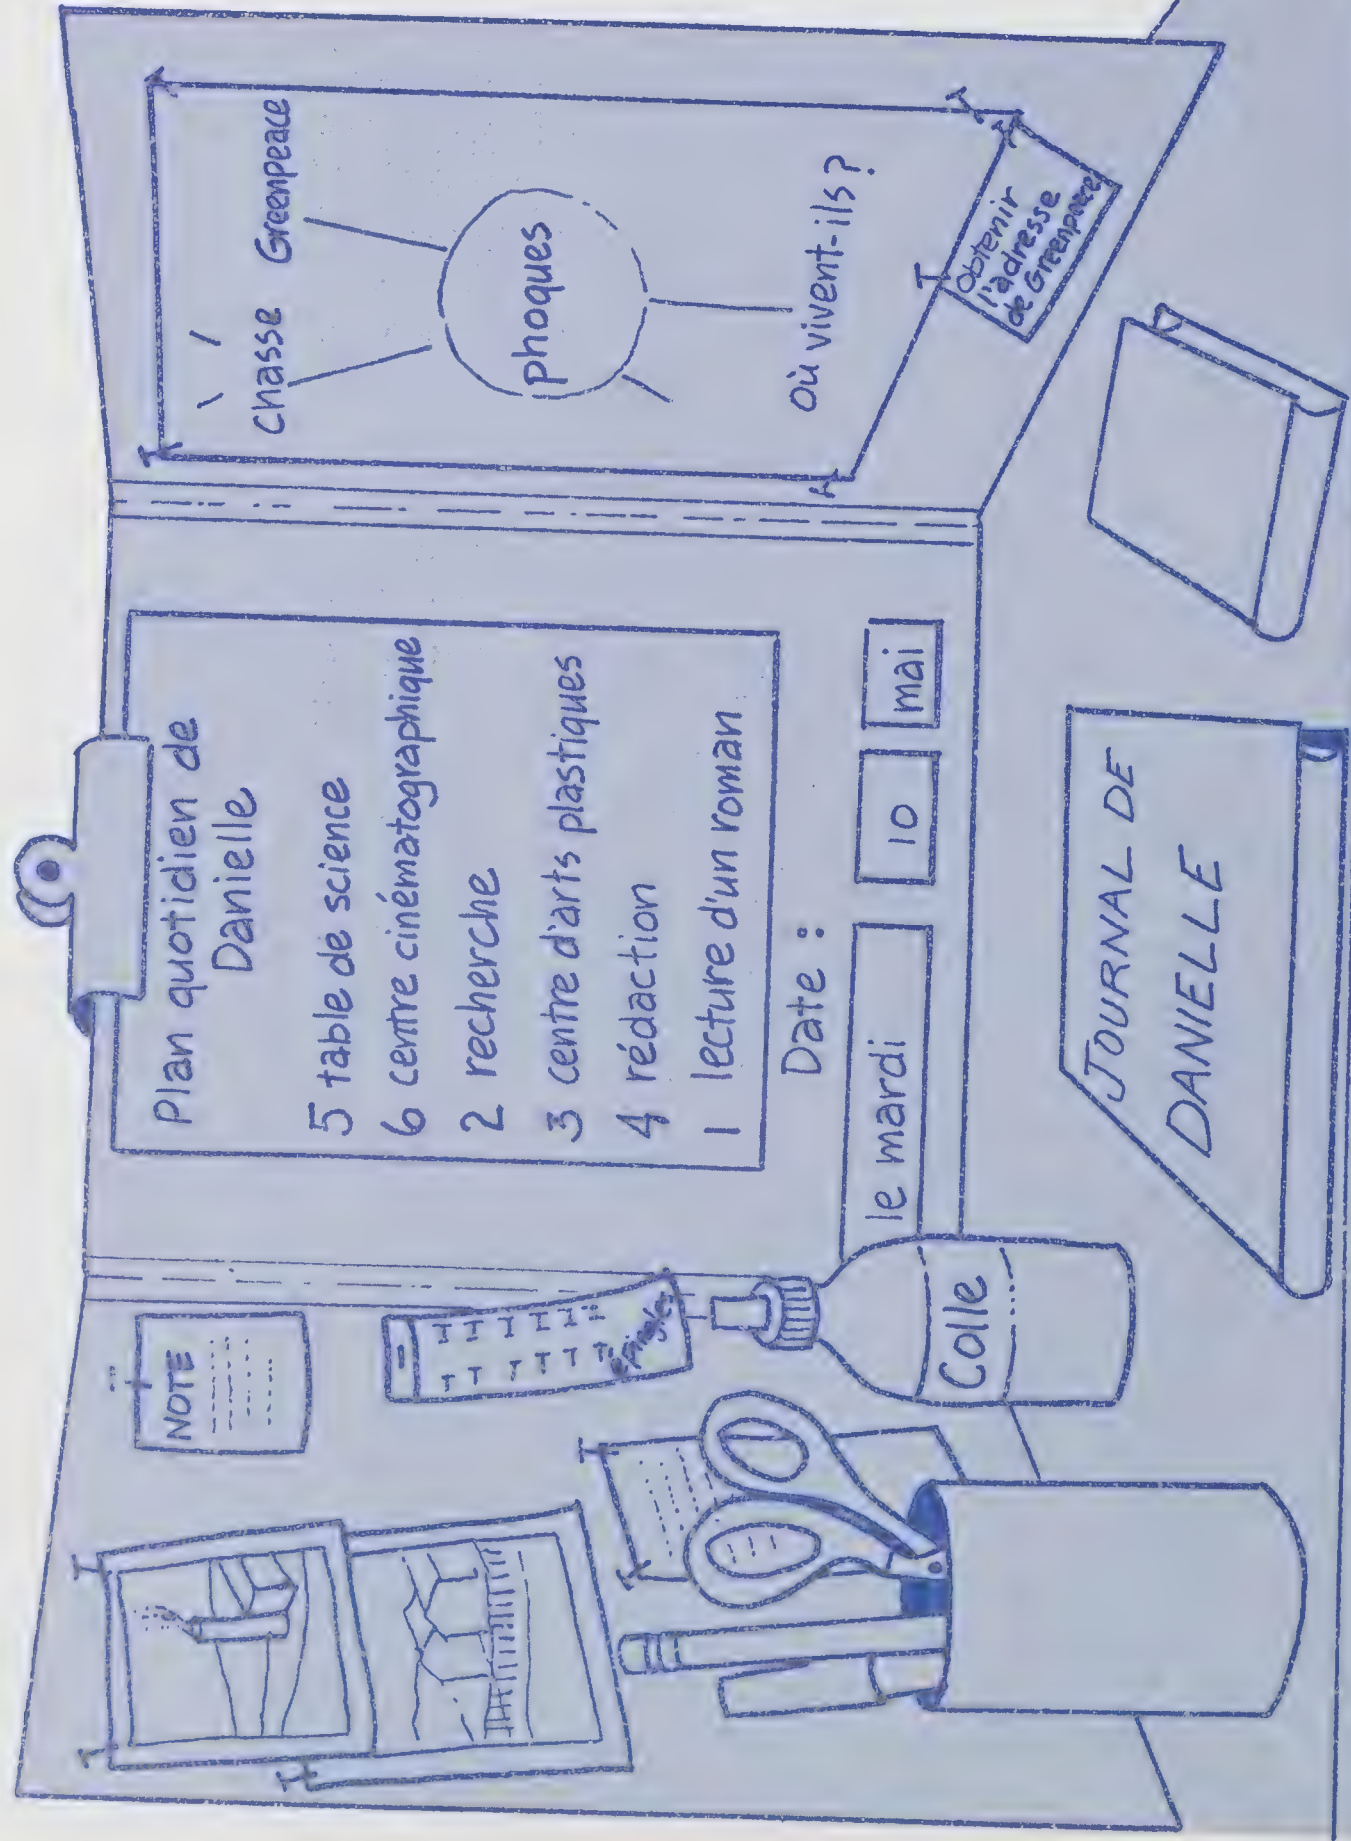 NOTE
Épingles
Colle
Plan quotidien de
Danielle
5 table de science
6 centre cinématographique
2 recherche
3 centre d'arts plastiques
4 rédaction
1 lecture d'un roman
Date :
le mardi
10
mai
Chasse
Greenpeace
phoques
Où vivent-ils ?
Obtenir
l'adresse
de Greenpeace
JOURNAL DE
DANIELLE